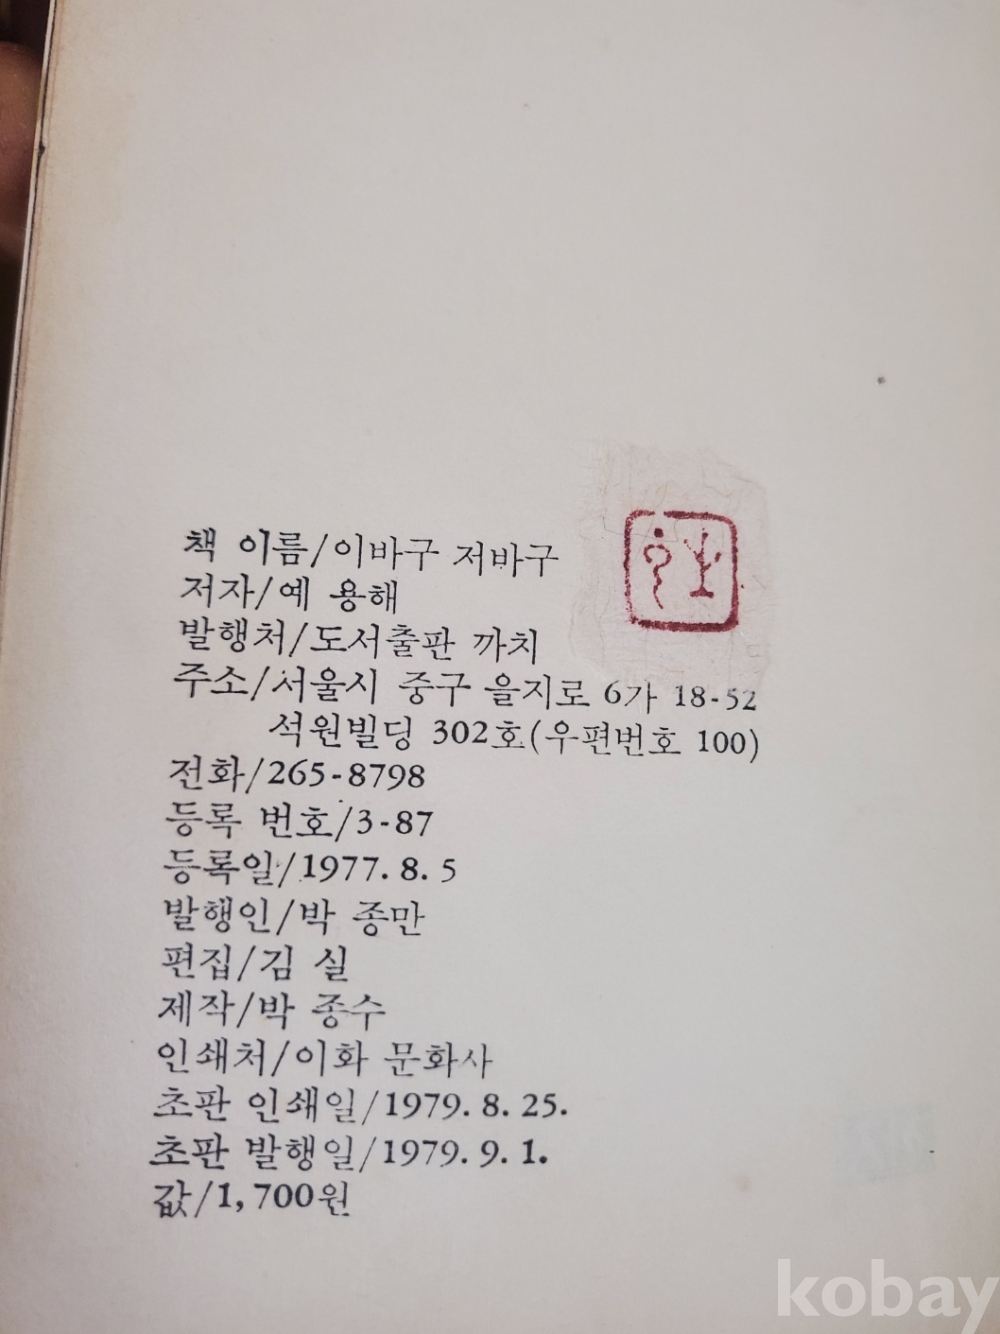 책 이름/이바구 저바구
저자/예 용해
발행처/도서출판 까치
주소/서울시 중구 을지로 6가 18-52
석원빌딩 302호(우편번호 100)
전화/265-8798
등록 번호/3-87
등록일/1977. 8. 5
발행인/박 종만
편집/김 실
제작/박 종수
인쇄처/이화 문화사
초판 인쇄일/1979. 8. 25.
초판 발행일/1979. 9. 1.
값/1,700원
kobay